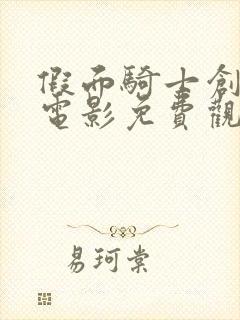 假面騎士創
電影免費觀
易珂棠